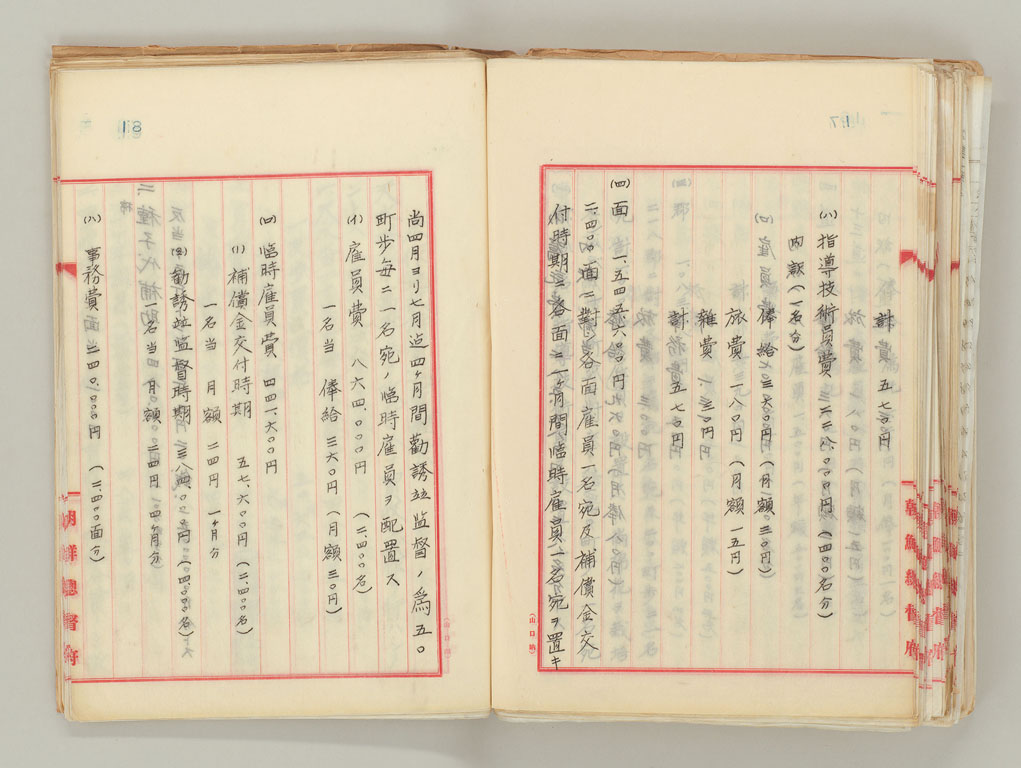 計 五七〇円
(ハ) 指導技術員費 二二八、〇〇〇円 (四〇〇名分)
内訳(一名分)
俸給 三六〇円(月額三〇円)
旅費 一八〇円 (月額 一五円)
雑費 三〇円
計 五七〇円
(四) 面 一、五四五、六〇〇円
二、四〇〇面ニ對シ各面雇員一名宛及補償金交
付時期ニ各面ニ一ヶ月間臨時雇員一名宛ヲ置キ
朝鮮總督府
尚四月ヨリ七月迄四ヶ月間勸誘竝監督ノ爲五〇
町歩毎ニ一名宛ノ臨時雇員ヲ配置ス
(イ) 雇員費 八六四、〇〇〇円 (二、四〇〇名)
一名当 俸給 三六〇円 (月額三〇円)
(ロ) 臨時雇員費 四四一、六〇〇円
(1) 補償金交付時期 五七、六〇〇円 (二、四〇〇名)
一名当 月額 二四円 一ヶ月分
(2) 勸誘竝監督時期 三八四、〇〇〇円 (四、〇〇〇名)
一名当 月額 二四円 四ヶ月分
(ハ) 事務費 二四〇、〇〇〇円 (二、四〇〇面分)
朝鮮總督府